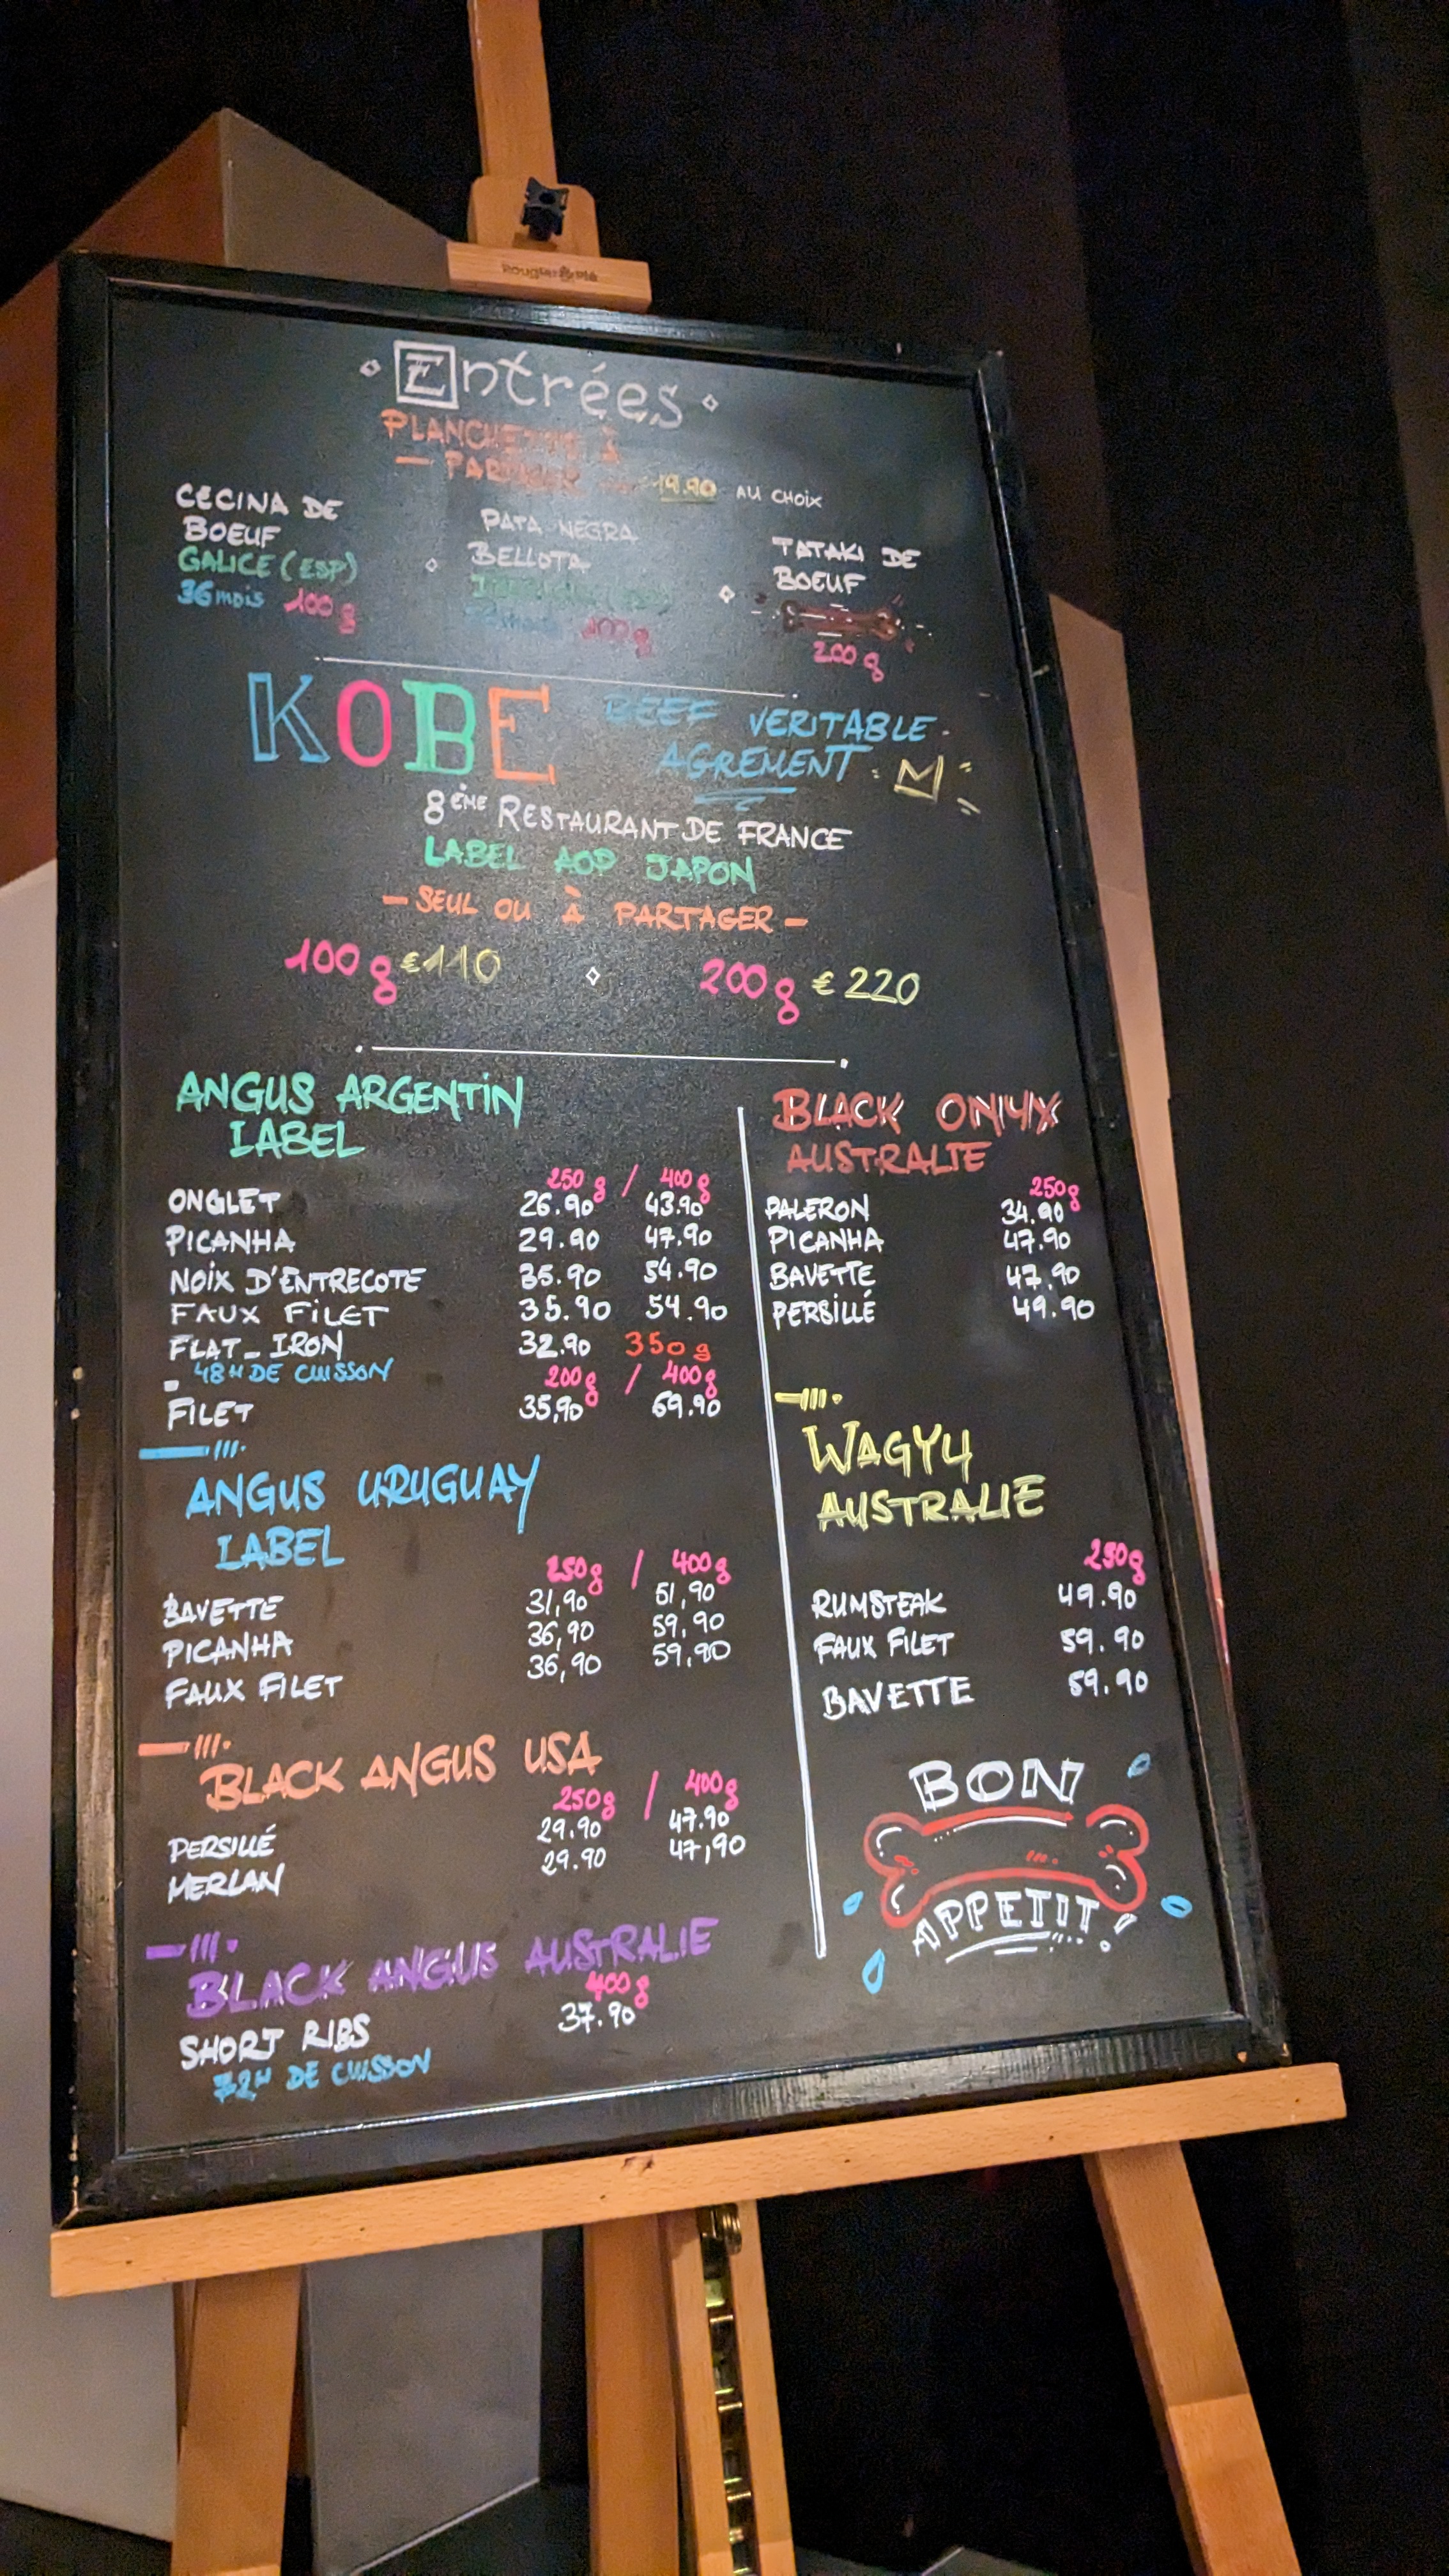 Rougier & Plé
Entrées
PLANCHETTE À
PARTAGER 19.90 AU CHOIX
CECINA DE
BOEUF
GALICE (ESP)
36 mois 100g
PATA NEGRA
BELLOTA
100g
TATAKI DE
BOEUF
200g
KOBE BEEF VERITABLE
AGREMENT
8ÈME RESTAURANT DE FRANCE
LABEL AOP JAPON
- SEUL OU À PARTAGER -
100g €110
200g €220
ANGUS ARGENTIN
LABEL
250g / 400g
ONGLET 26.90 43.90
PICANHA 29.90 47.90
NOIX D'ENTRECOTE 35.90 54.90
FAUX FILET 35.90 54.90
FLAT-IRON 32.90 350g
48H DE CUISSON 200g / 400g
FILET 35,90 69.90
ANGUS URUGUAY
LABEL
250g / 400g
BAVETTE 31,90 51,90
PICANHA 36,90 59,90
FAUX FILET 36,90 59,90
BLACK ANGUS USA
250g / 400g
PERSILLÉ 29.90 47.90
MERLAN 29.90 47,90
BLACK ANGUS AUSTRALIE
400g
SHORT RIBS 37.90
72H DE CUISSON
BLACK ONYX
AUSTRALIE
250g
PALERON 34.90
PICANHA 47.90
BAVETTE 47.90
PERSILLÉ 49.90
WAGYU
AUSTRALIE
250g
RUMSTEAK 49.90
FAUX FILET 59.90
BAVETTE 59.90
BON
APPETIT!